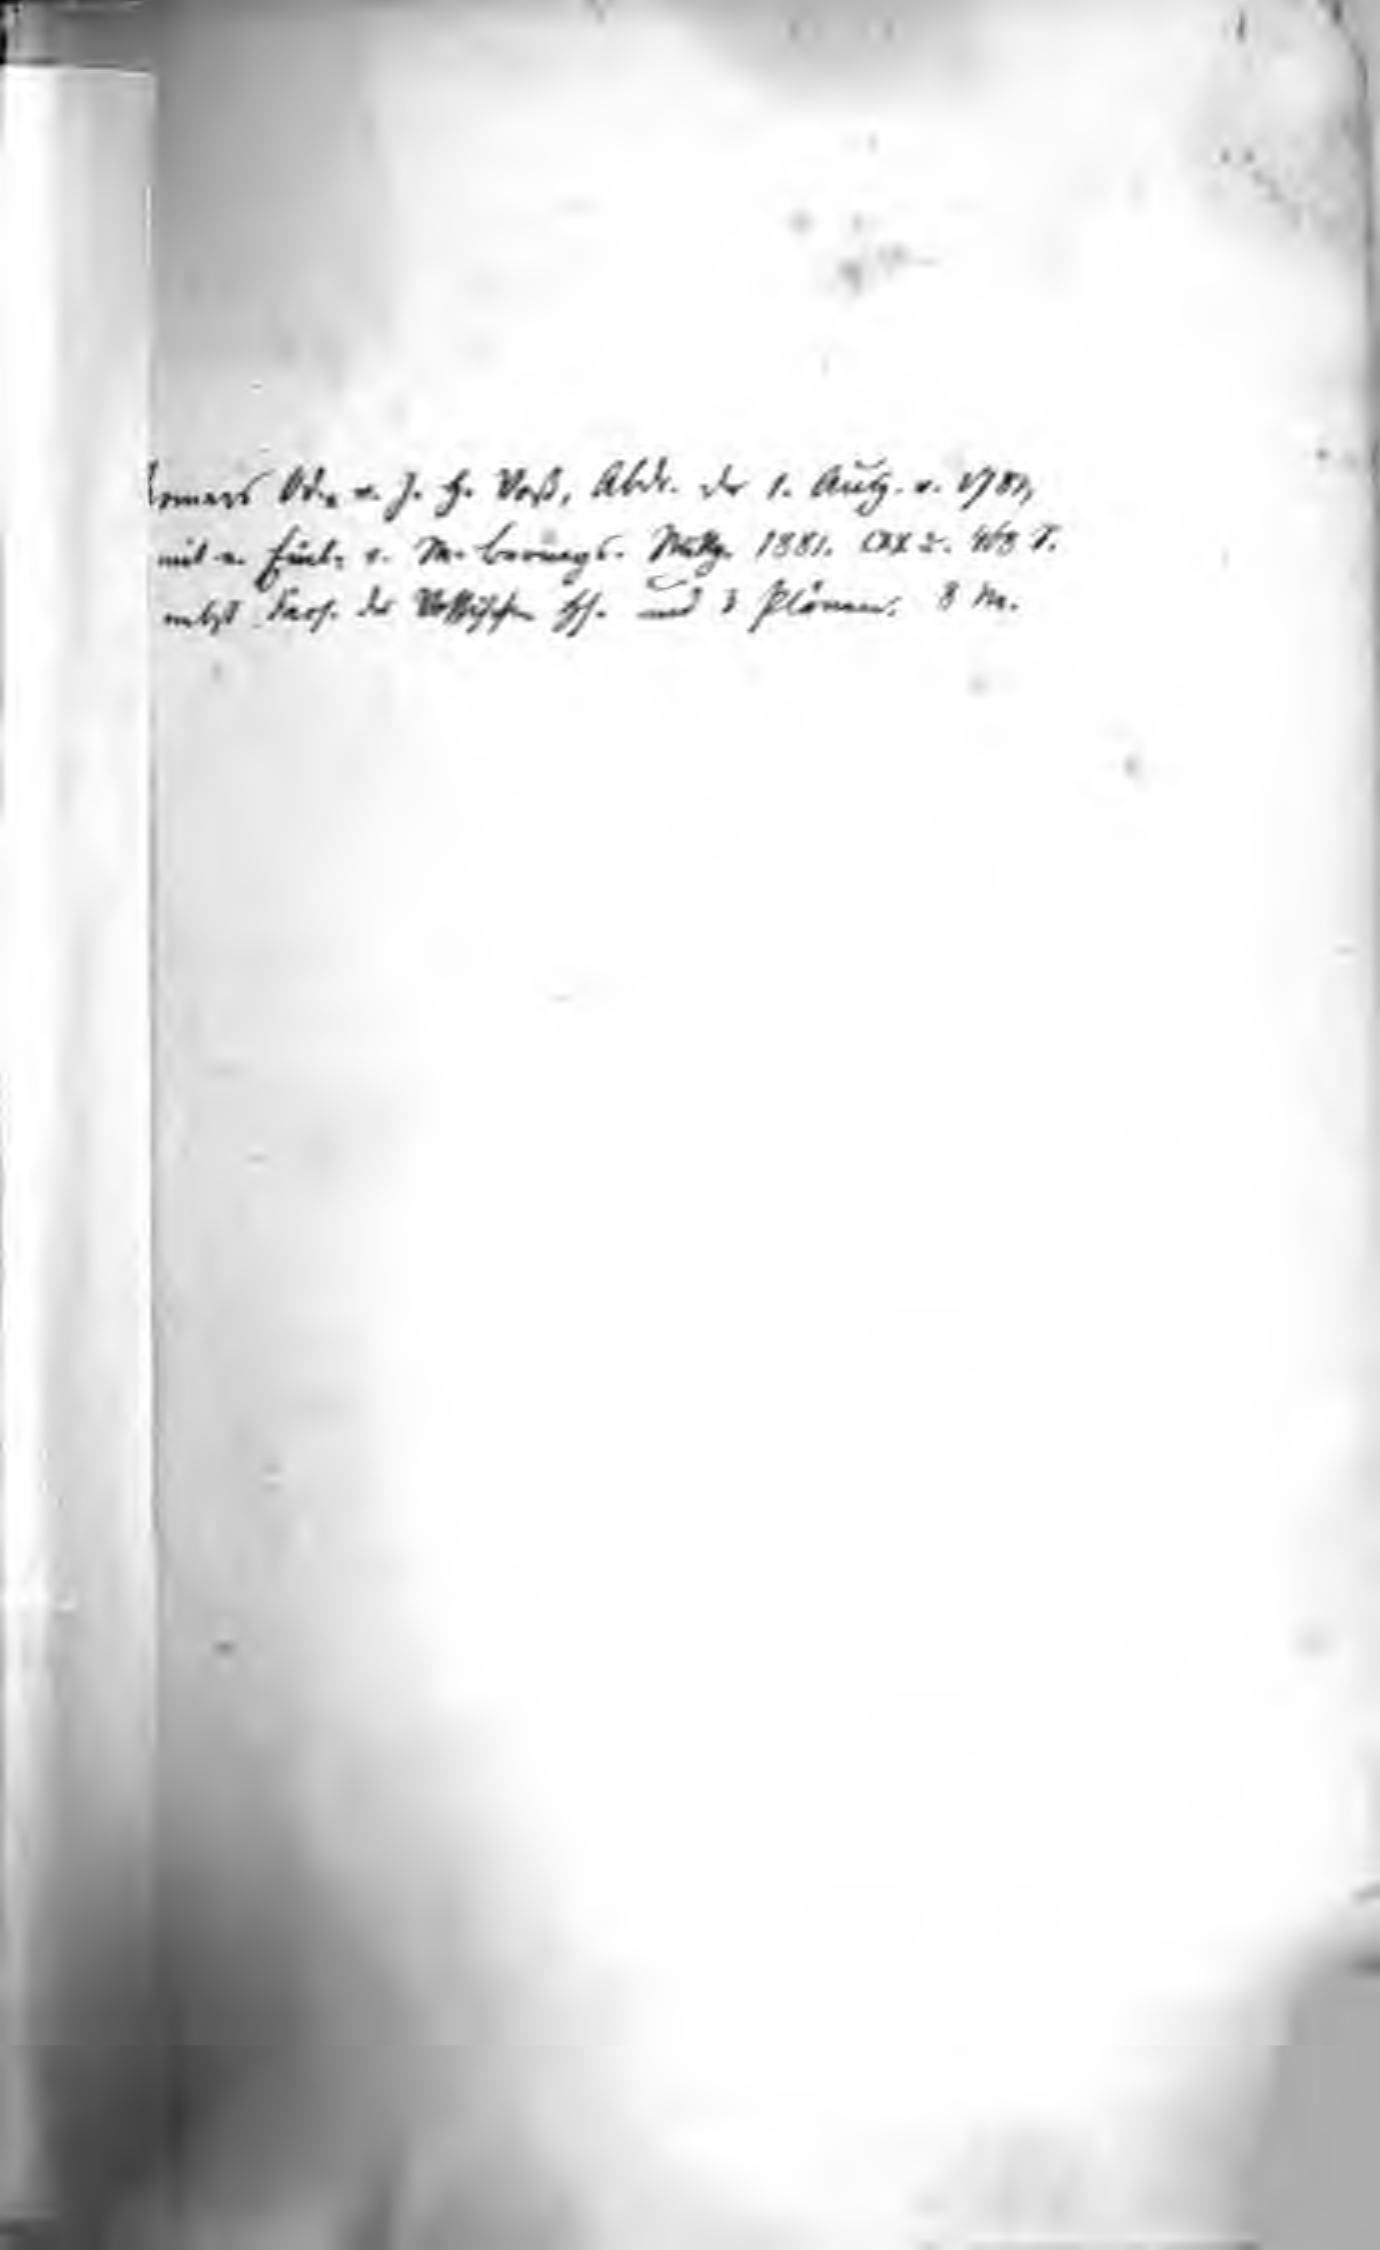 Homers Od. v. J. H. Voß, Abdr. der 1. Ausg. v. 1781,
mit e. Einl. v. M. Bernays. Stuttg. 1881. CXX u. 468 S.
nebst Facs. der Vossischen Hs. und 3 Plänen. 8 M.